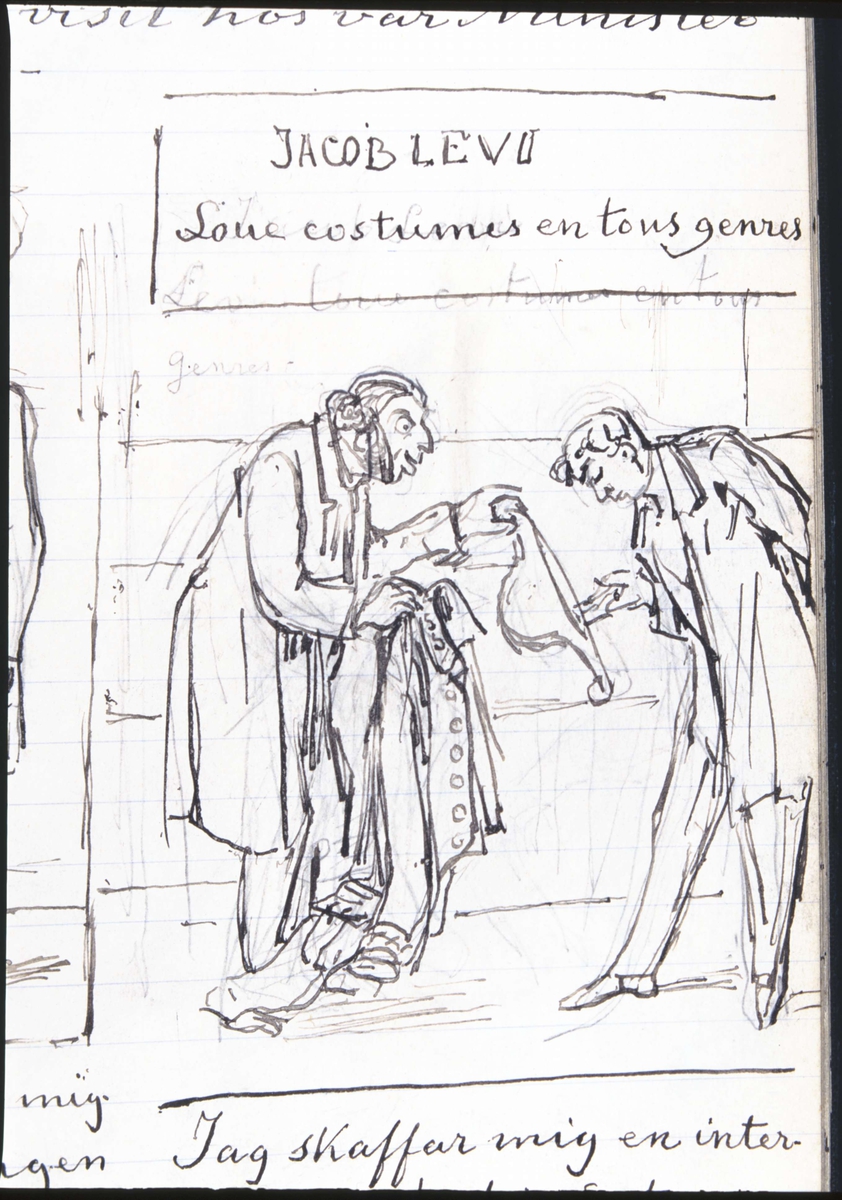 visit hos vår Minister
JACOB LEVI
Loue costumes en tous genres
Levi loue costumes en tous
genres.
mig.
ngen
Jag skaffar mig en inter-